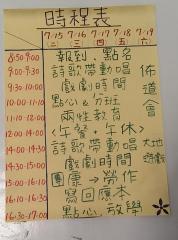 時程表
7/15 (二) 7/16 (三) 7/17 (四) 7/18 (五) 7/19 (六)
8:50-9:00 報到、點名
9:00-9:30 詩歌帶動唱
9:30-10:00 戲劇時間
10:00-11:00 點心&分班
11:00-12:00 兩性教育
佈道會
12:00-14:00 <午餐、午休>
14:00-14:30 詩歌帶動唱
14:30-15:00 戲劇時間
大地遊戲
15:00-16:10 團康→勞作
16:10-16:30 寫回應本
16:30-17:00 點心、放學